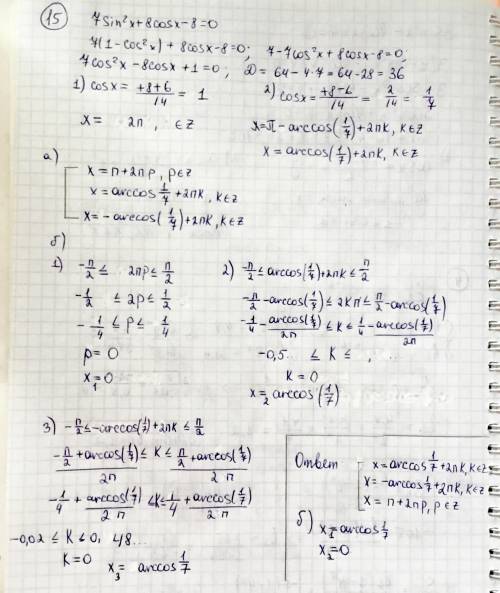 15
7sin²x+8cosx-8=0
7(1-cos²x)+8cosx-8=0; 7-7cos²x+8cosx-8=0;
7cos²x-8cosx+1=0; D=64-4·7=64-28=36
1) cosx=(+8+6)/14=1
x= 2π , ∈Z
2) cosx=(+8-6)/14=2/14=1/7
x=π-arccos(1/7)+2πk, k∈Z
x=arccos(1/7)+2πk, k∈Z
а)
x=π+2πp, p∈Z
x=arccos 1/7+2πk, k∈Z
x=-arccos(1/7)+2πk, k∈Z
б)
1) -π/2≤ 2πp≤π/2
-1/2 ≤2p≤1/2
-1/4≤p≤ 1/4
p=0
x₁=0
2) -π/2≤arccos(1/7)+2πk≤π/2
-π/2-arccos(1/7)≤2kπ≤π/2-arccos(1/7)
-1/4-arccos(1/7)/2π≤k≤1/4-arccos(1/7)/2π
-0,5.. ≤k≤
k=0
x₂=arccos(1/7)
3) -π/2≤-arccos(1/7)+2πk≤π/2
(-π/2+arccos(1/7))/2π≤k≤(π/2+arccos(1/7))/2π
-1/4+arccos(1/7)/2π≤k≤1/4+arccos(1/7)/2π
-0,02≤k≤0,48...
k=0 x₃= arccos 1/7
Ответ
x=arccos 1/7+2πk, k∈Z
x=-arccos 1/7+2πk, k∈Z
x=π+2πp, p∈Z
б) x₁=arccos 1/7
x₂=0